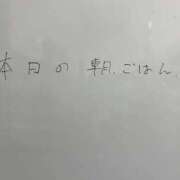 本日の朝ごはん